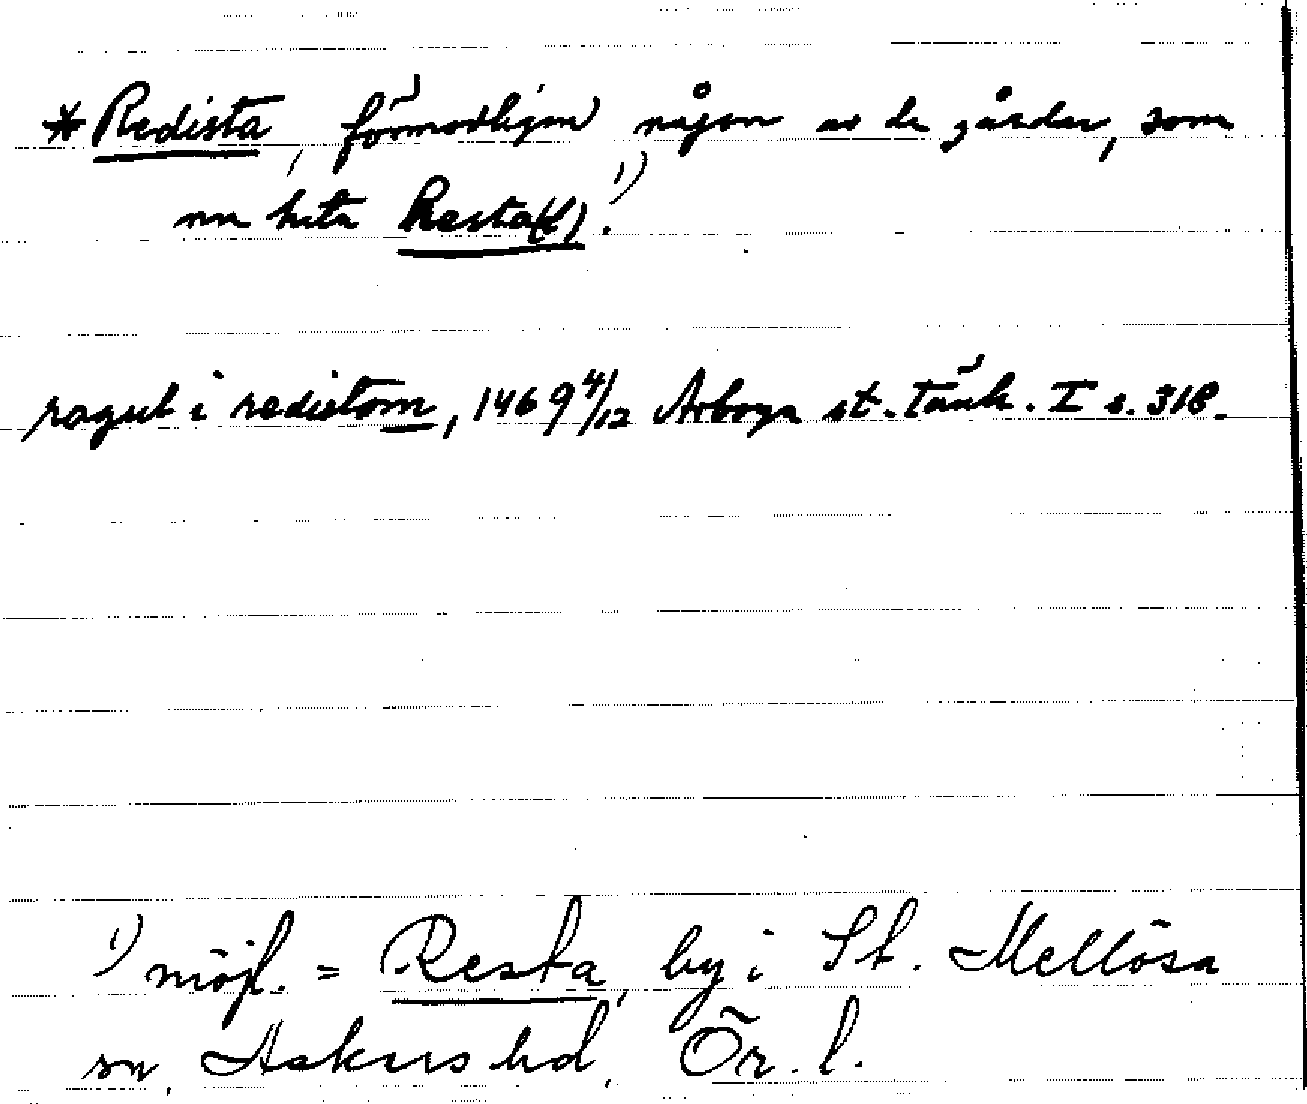 *Redista, förmodligen någon av de gårdar, som
nu heta Resta(d).¹⁾
ragut i redistom, 1469 4/12 Arboga st. tänk. I s. 318.
¹⁾ möjl. = Resta, by i St. Mellösa
sn, Askers hd, Ör. l.